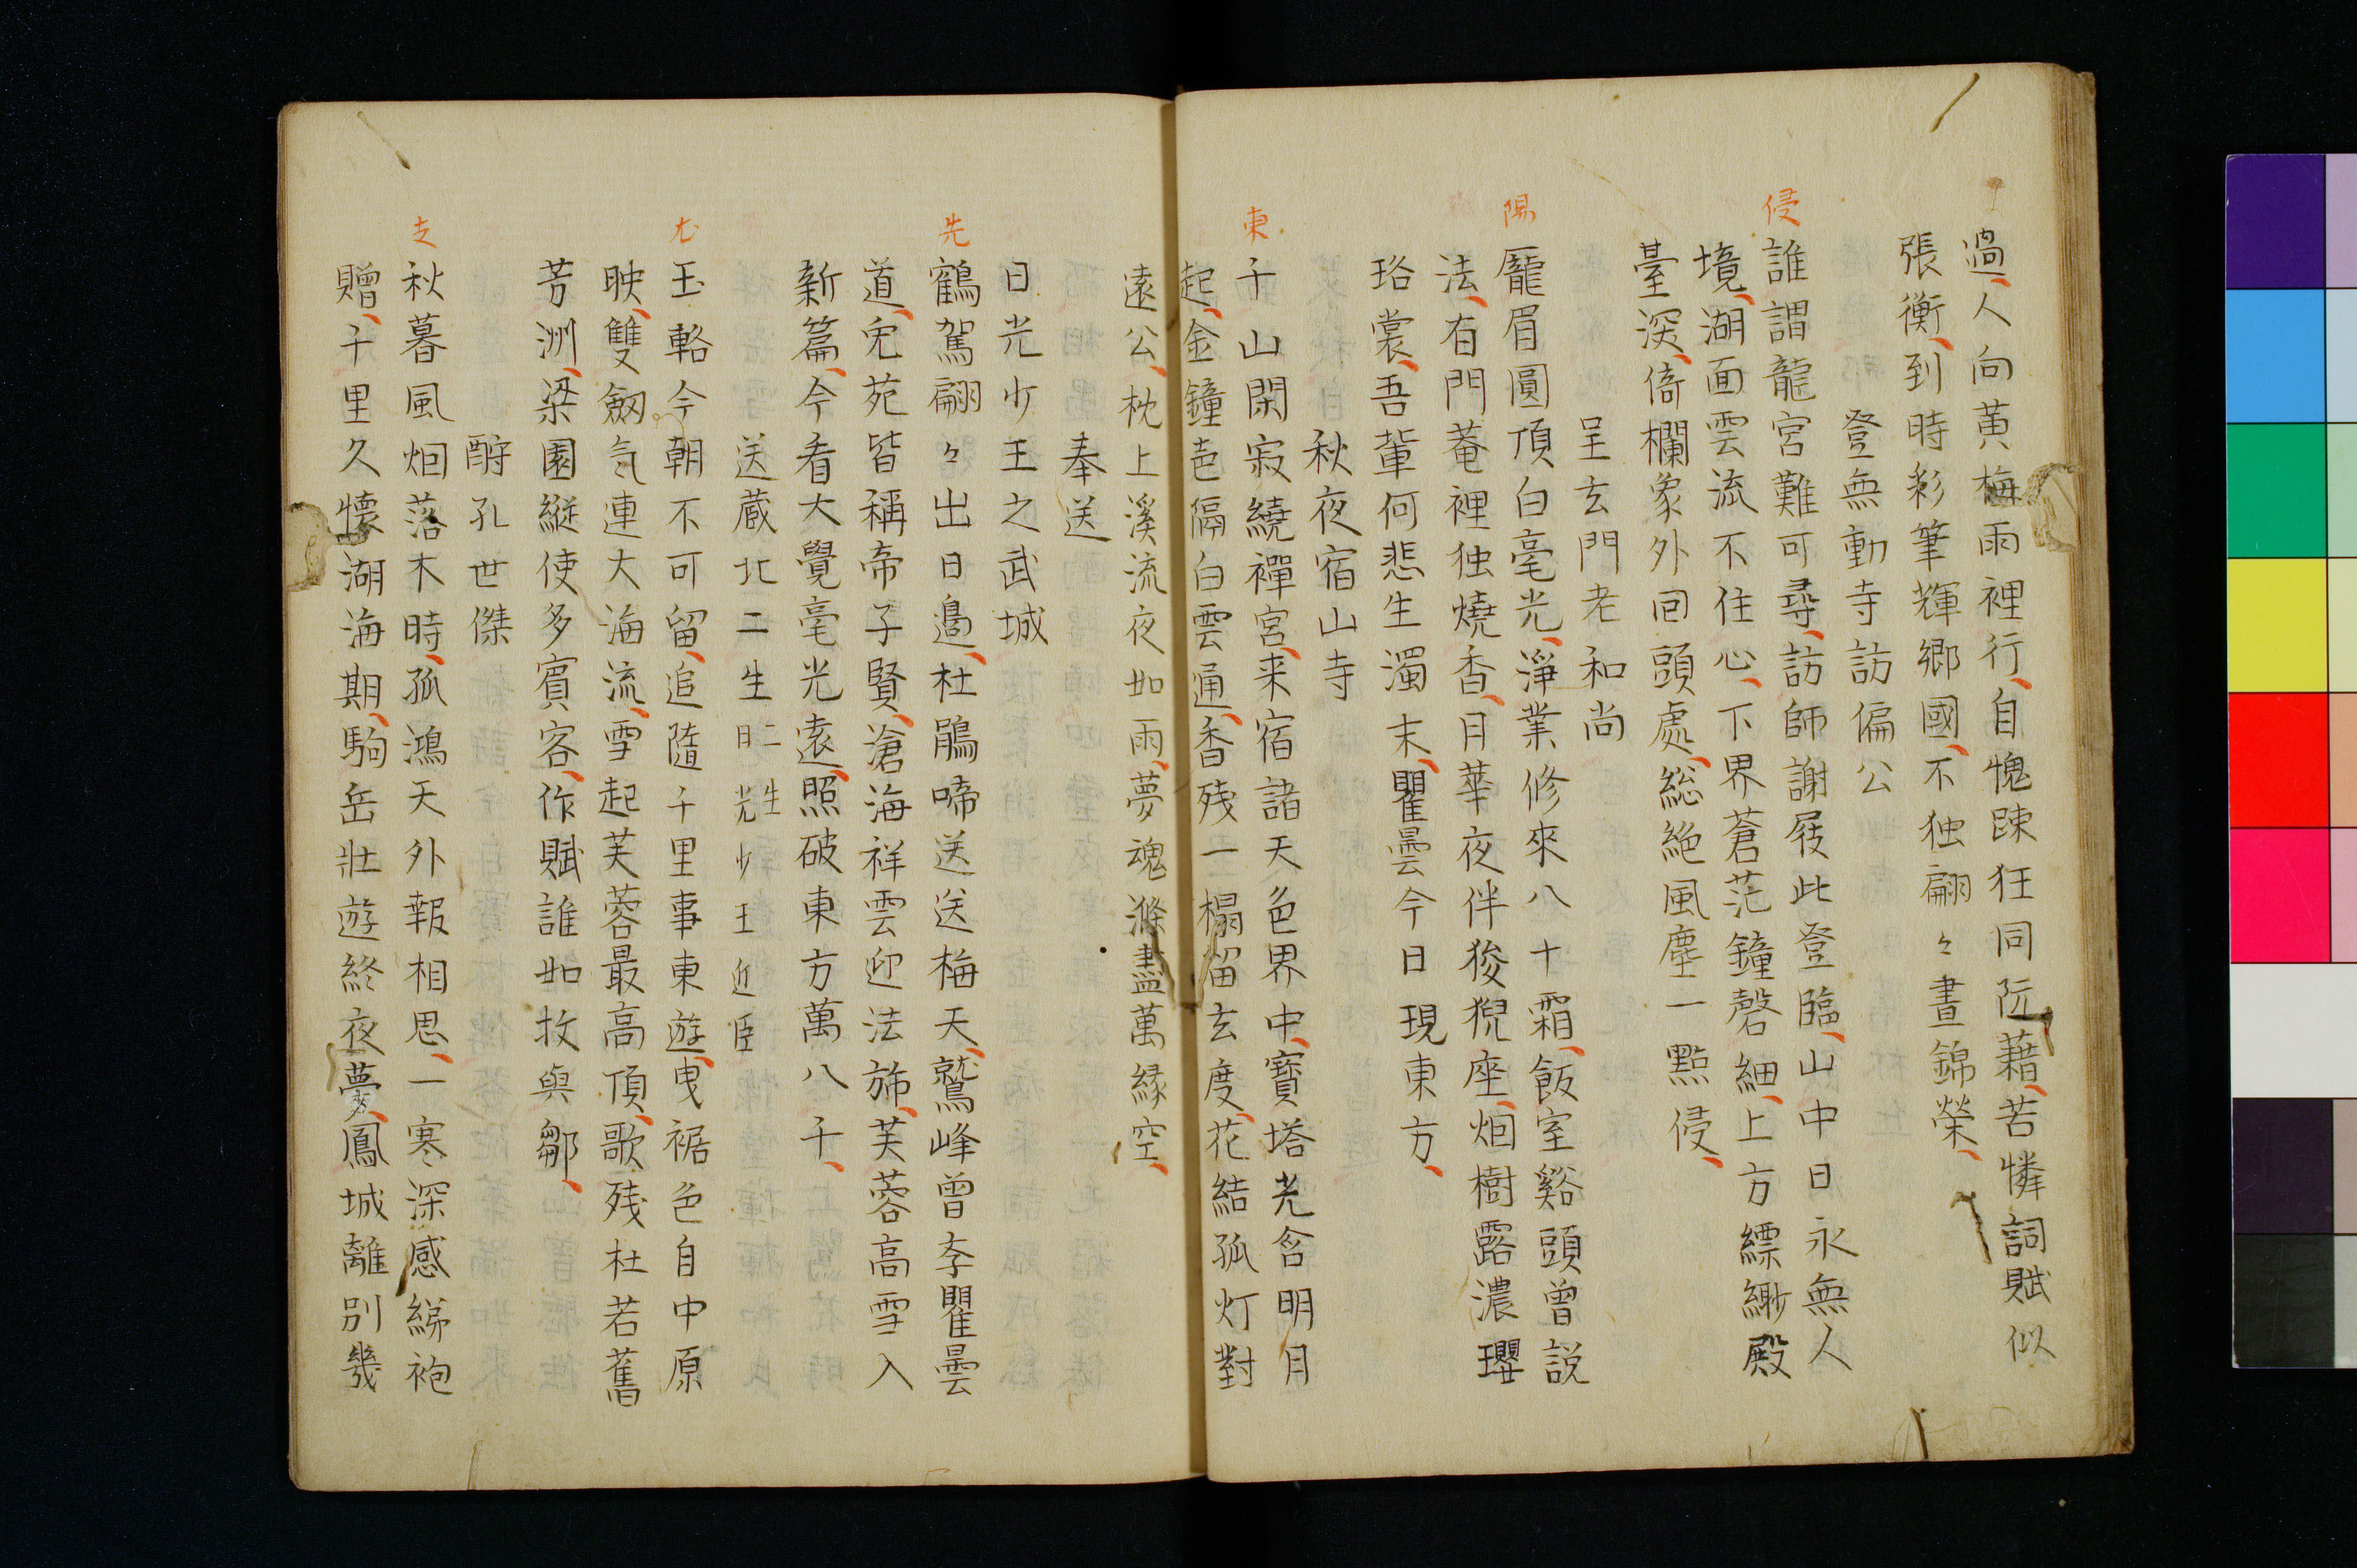 過、人向黄梅雨裡行、自愧踈狂同阮藉、苦憐詞賦似
張衡、到時彩筆輝郷國、不独翩々晝錦榮、
登無動寺訪偏公
侵
誰謂龍宮難可尋、訪師謝屐此登臨、山中日永無人
境、湖面雲流不住心、下界蒼茫鐘磬細、上方縹緲殿
臺深、倚欄象外回頭處、総絶風塵一點侵、
呈玄門老和尚
陽
厖眉圓頂白毫光、淨業修來八十霜、飯室谿頭曽説
法、有門菴裡独燒香、月華夜伴狻猊座、烟樹露濃瓔
珞裳、吾輩何悲生濁末、瞿曇今日現東方、
秋夜宿山寺
東
千山閑寂繞禪宮、来宿諸天色界中、寳塔光含明月
起、金鐘声隔白雲通、香残一榻留玄度、花結孤灯對
遠公、枕上溪流夜如雨、夢魂滌盡萬縁空、
奉送
日光少王之武城
先
鶴駕翩々出日邉、杜鵑啼送送梅天、鷲峰曽李瞿曇
道、兎苑皆稱帝子賢、滄海祥雲迎法旆、芙蓉高雪入
新篇、今看大覺毫光遠、照破東方萬八千、
送蔵北二生 二生日光少王近臣
尤
玉輅今朝不可留、追隨千里事東遊、曳裾色自中原
映、雙劔気連大海流、雪起芙蓉最高頂、歌残杜若舊
芳洲、梁園縦使多賓客、作賦誰如枚與鄒、
酧孔世傑
支
秋暮風烟落木時、孤鴻天外報相思、一寒深感綈袍
贈、千里久懐湖海期、駒岳壮遊終夜夢、鳳城離別幾